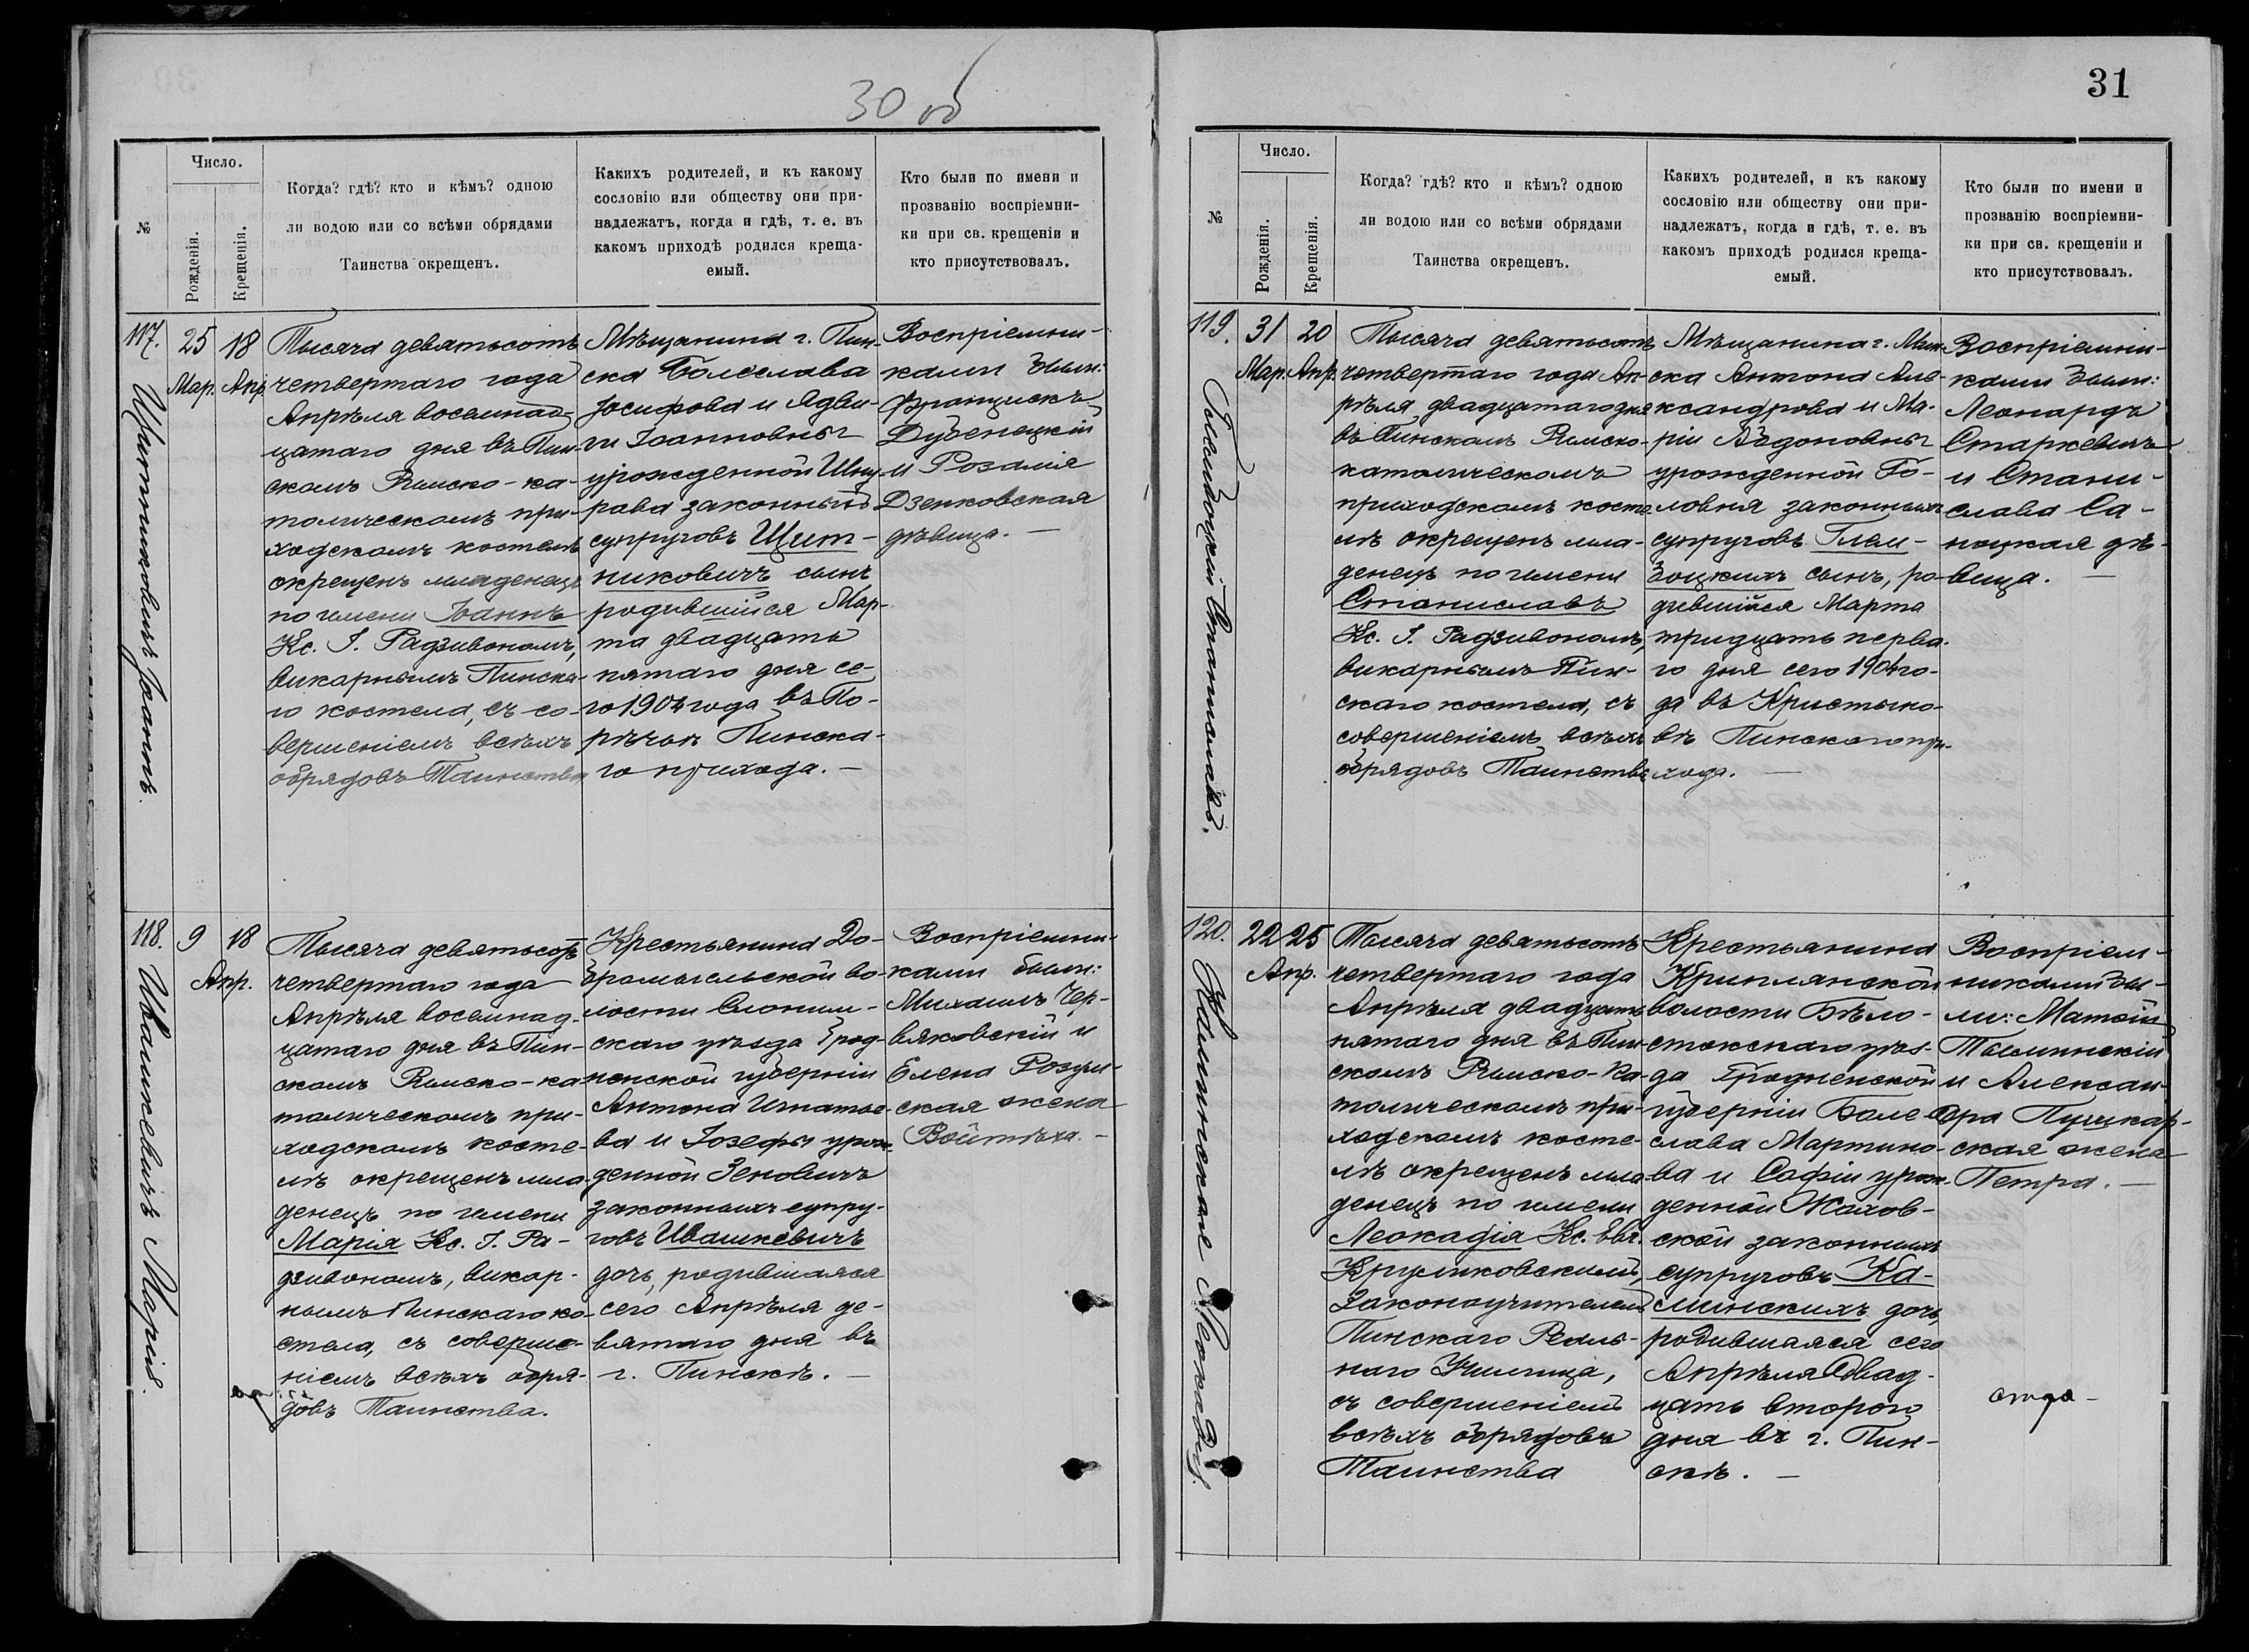 30 об
№
Число.
Рожденія.
Крещенія.
Когда? гдѣ? кто и кѣмъ? одною
ли водою или со всѣми обрядами
Таинства окрещенъ.
Какихъ родителей, и къ какому
сословію или обществу они при-
надлежатъ, когда и гдѣ, т. е. въ
какомъ приходѣ родился креща-
емый.
Кто были по имени и
прозванію воспріемни-
ки при св. крещеніи и
кто присутствовалъ.
117.
Щитниковичъ Іоаннъ.
25
Мар.
18
Апр.
Тысяча девятьсотъ
четвертаго года
Апрѣля восемнад-
цатаго дня въ Пин-
скомъ Римско-ка-
толическомъ при-
ходскомъ костелѣ
окрещенъ младенецъ
по имени Іоаннъ
Кс. І. Радзивономъ,
викарнымъ Пинска-
го костела, съ со-
вершеніемъ всѣхъ
обрядовъ Таинства
Мѣщанина г. Пин-
ска Болеслава
Іосифова и Ядви-
ги Іоанновны
урожденной
рава законныхъ
супруговъ Щит-
никовичъ сынъ
родившійся Мар-
та двадцать
пятаго дня се-
го 1904 года въ По-
рѣчьѣ Пинска-
го прихода. —
Воспріемни-
ками были:
Францискъ
Дубенецкій
и Розалія
Дзенковская
дѣвица. —
118.
Ивашкевичъ Марія.
9
18
Апр.
Тысяча девятьсотъ
четвертаго года
Апрѣля восемнад-
цатаго дня въ Пин-
скомъ Римско-ка-
толическомъ при-
ходскомъ косте-
лѣ окрещенъ мла-
денецъ по имени
Марія Кс. І. Ра-
дзивономъ, викар-
нымъ Пинскаго ко-
стела, съ соверше-
ніемъ всѣхъ обря-
довъ Таинства.
Крестьянина До-
бромысльской во-
лости Слоним-
скаго уѣзда Грод-
ненской губерніи
Антона Игнатье-
ва и Іозефы урож-
денной Зеновичъ
законныхъ супру-
говъ Ивашкевичъ
дочь, родившаяся
сего Апрѣля де-
вятаго дня въ
г. Пинскѣ. —
Воспріемни-
ками были:
Михаилъ Чер-
вяковскій и
Елена
ская жена
Войтѣха. —
31
№
Число.
Рожденія.
Крещенія.
Когда? гдѣ? кто и кѣмъ? одною
ли водою или со всѣми обрядами
Таинства окрещенъ.
Какихъ родителей, и къ какому
сословію или обществу они при-
надлежатъ, когда и гдѣ, т. е. въ
какомъ приходѣ родился креща-
емый.
Кто были по имени и
прозванію воспріемни-
ки при св. крещеніи и
кто присутствовалъ.
119.
Станиславъ.
31
Мар.
20
Апр.
Тысяча девятьсотъ
четвертаго года Ап-
рѣля двадцатаго дня
въ Пинскомъ Римско-
католическомъ
приходскомъ косте-
лѣ окрещенъ мла-
денецъ по имени
Станиславъ
Кс. І. Радзивономъ,
викарнымъ Пин-
скаго костела, съ
совершеніемъ всѣхъ
обрядовъ Таинства
Мѣщанина г. Мин-
ска Антона Але-
ксандрова и Ма-
ріи
урожденной Го-
ловня законныхъ
супруговъ Глем-
боцкихъ сынъ, ро-
дившійся Марта
тридцать перва-
го дня сего 1904 го-
да въ Кристыно-
вѣ Пинскаго при-
хода. —
Воспріемни-
ками были:
Леонардъ
Старкевичъ
и Стани-
слава Са-
ноцкая дѣ-
вица. —
120.
Каминская Леокадія.
22
25
Апр.
Тысяча девятьсотъ
четвертаго года
Апрѣля двадцать
пятаго дня въ Пин-
скомъ Римско-Ка-
толическомъ при-
ходскомъ косте-
лѣ окрещенъ мла-
денецъ по имени
Леокадія Кс. Евг.
Крупиковскимъ,
Законоучителемъ
Пинскаго Реаль-
наго Училища,
съ совершеніемъ
всѣхъ обрядовъ
Таинства
Крестьянина
Криплянской
волости Бѣло-
стокскаго уѣз-
да Гродненской
губерніи Боле-
слава Мартино-
ва и Софіи урож-
денной Жахов-
ской законныхъ
супруговъ Ка-
минскихъ дочь,
родившаяся сего
Апрѣля двад-
цать второго
дня въ г. Пин-
скѣ. —
Воспріем-
никами бы-
ли: Матвій
и Алексан-
дра Пушкар-
ская жена
Петра. —